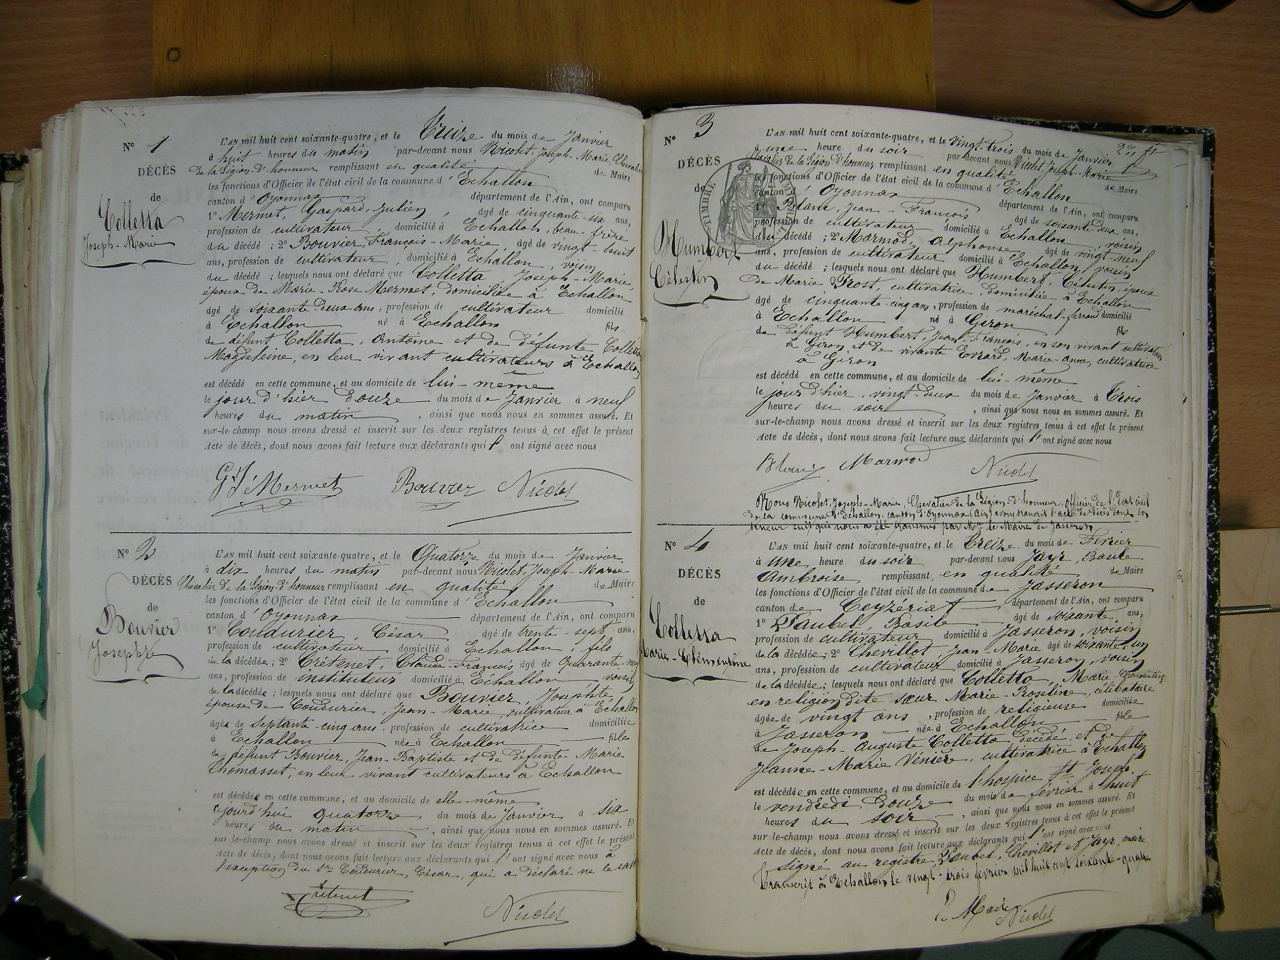 N° 1
DÉCÈS
de
Colletta
Joseph-Marie
L'AN mil huit cent soixante-quatre, et le Treize du mois de Janvier
à huit heures du matin par-devant nous Nicolet, Joseph-Marie, Chevalier
de la Légion d'honneur remplissant en qualité de Maire
les fonctions d'Officier de l'état civil de la commune d'Echallon
canton d'Oyonnax département de l'Ain, ont comparu
1° Mermet, Gaspard-Julien âgé de cinquante-six ans,
profession de cultivateur domicilié à Echallon, beau-frère
du décédé; 2° Bouvier, François-Marie, âgé de vingt-huit
ans, profession de cultivateur, domicilié à Echallon, voisin
du décédé; lesquels nous ont déclaré que Colletta Joseph-Marie,
époux de Marie-Rose Mermet, domiciliée à Echallon
âgé de soixante deux ans, profession de cultivateur domicilié
à Echallon né à Echallon fils
de défunt Colletta, Antoine et de défunte Colletta
Magdeleine, en leur vivant cultivateurs à Echallon
est décédé en cette commune, et au domicile de lui-même
le jour d'hier douze du mois de Janvier à neuf
heures du matin, ainsi que nous nous en sommes assuré. Et
sur-le-champ nous avons dressé et inscrit sur les deux registres tenus à cet effet le présent
acte de décès, dont nous avons fait lecture aux déclarants qui l'ont signé avec nous
Mermet Bouvier Nicolet
N° 2
DÉCÈS
de
Bouvier
Josephte
L'AN mil huit cent soixante-quatre, et le Quatorze du mois de Janvier
à dix heures du matin par-devant nous Nicolet, Joseph-Marie
Chevalier de la Légion d'honneur remplissant en qualité de Maire
les fonctions d'Officier de l'état civil de la commune d'Echallon
canton d'Oyonnax département de l'Ain, ont comparu
1° Coudurier, César âgé de trente-sept ans,
profession de cultivateur domicilié à Echallon, fils
de la décédée; 2° Crétenet, Claude-François âgé de quarante
ans, profession de instituteur domicilié à Echallon voisin
de la décédée; lesquels nous ont déclaré que Bouvier, Josephte,
épouse de Coudurier, Jean-Marie, cultivateur à Echallon
âgée de septante-cinq ans, profession de cultivatrice domiciliée
à Echallon née à Echallon fille
de défunt Bouvier, Jean-Baptiste et de défunte Marie
Thomasset, en leur vivant cultivateurs à Echallon
est décédée en cette commune, et au domicile de elle-même
aujourd'hui quatorze du mois de Janvier à six
heures du matin, ainsi que nous nous en sommes assuré. Et
sur-le-champ nous avons dressé et inscrit sur les deux registres tenus à cet effet le présent
acte de décès, dont nous avons fait lecture aux déclarants qui l'ont signé avec nous à
l'exception du Sr Coudurier, César, qui a déclaré ne le
Crétenet Nicolet
N° 3
DÉCÈS
de
Humbert
Célestin
TIMBRE
L'AN mil huit cent soixante-quatre, et le Vingt-trois du mois de Janvier
à une heure du soir par-devant nous Nicolet, Joseph-Marie
Chevalier de la Légion d'honneur remplissant en qualité de Maire
les fonctions d'Officier de l'état civil de la commune d'Echallon
canton d'Oyonnax département de l'Ain, ont comparu
1° Jean-François âgé de soixante deux ans,
profession de cultivateur domicilié à Echallon, voisin
du décédé; 2° Marmod, Alphonse âgé de vingt-neuf
ans, profession de cultivateur domicilié à Echallon, voisin
du décédé; lesquels nous ont déclaré que Humbert, Célestin époux
de Marie Prost, cultivatrice, domiciliée à Echallon
âgé de cinquante-cinq ans, profession de maréchal-ferrant domicilié
à Echallon né à Giron fils
de défunt Humbert, Jean-François, en son vivant cultivateur
à Giron et de vivante Evrard, Marie-Anne, cultivatrice
à Giron
est décédé en cette commune, et au domicile de lui-même
le jour d'hier, vingt-deux du mois de Janvier à trois
heures du soir, ainsi que nous nous en sommes assuré. Et
sur-le-champ nous avons dressé et inscrit sur les deux registres tenus à cet effet le présent
acte de décès, dont nous avons fait lecture aux déclarants qui l'ont signé avec nous
Marmod Nicolet
Nous Nicolet, Joseph-Marie, Chevalier de la Légion d'honneur, officier de l'Etat civil
de la commune d'Echallon, canton d'Oyonnax (Ain) avons transcrit l'acte de décès dont la
teneur suit qui nous a été transmis par Mr le Maire de Jasseron
N° 4
DÉCÈS
de
Colletta
Marie-Clémentine
L'AN mil huit cent soixante-quatre, et le Treize du mois de Février
à une heure du soir par-devant nous Jayr, Basile
Ambroise remplissant en qualité de Maire
les fonctions d'Officier de l'état civil de la commune de Jasseron
canton de Ceyzériat département de l'Ain, ont comparu
1° Basile âgé de soixante ans,
profession de cultivateur domicilié à Jasseron, voisin
de la décédée; 2° Chevillot Jean-Marie âgé de soixante un
ans, profession de cultivateur domicilié à Jasseron, voisin
de la décédée; lesquels nous ont déclaré que Colletta, Marie Clémentine
en religion dite sœur Marie-Rogatine, célibataire
âgée de vingt ans, profession de religieuse domiciliée
à Jasseron née à Echallon fille
de Joseph-Auguste Colletta décédé et de
Jeanne-Marie cultivatrice à Echallon
est décédée en cette commune, et au domicile de l'hospice St Joseph
le vendredi douze du mois de février à huit
heures du soir, ainsi que nous nous en sommes assuré. Et
sur-le-champ nous avons dressé et inscrit sur les deux registres tenus à cet effet le présent
acte de décès, dont nous avons fait lecture aux déclarants qui l'ont signé avec nous
signé au registre Chevillot et Jayr, maire
Transcrit à Echallon le vingt-trois février mil huit cent soixante-quatre
Le Maire Nicolet